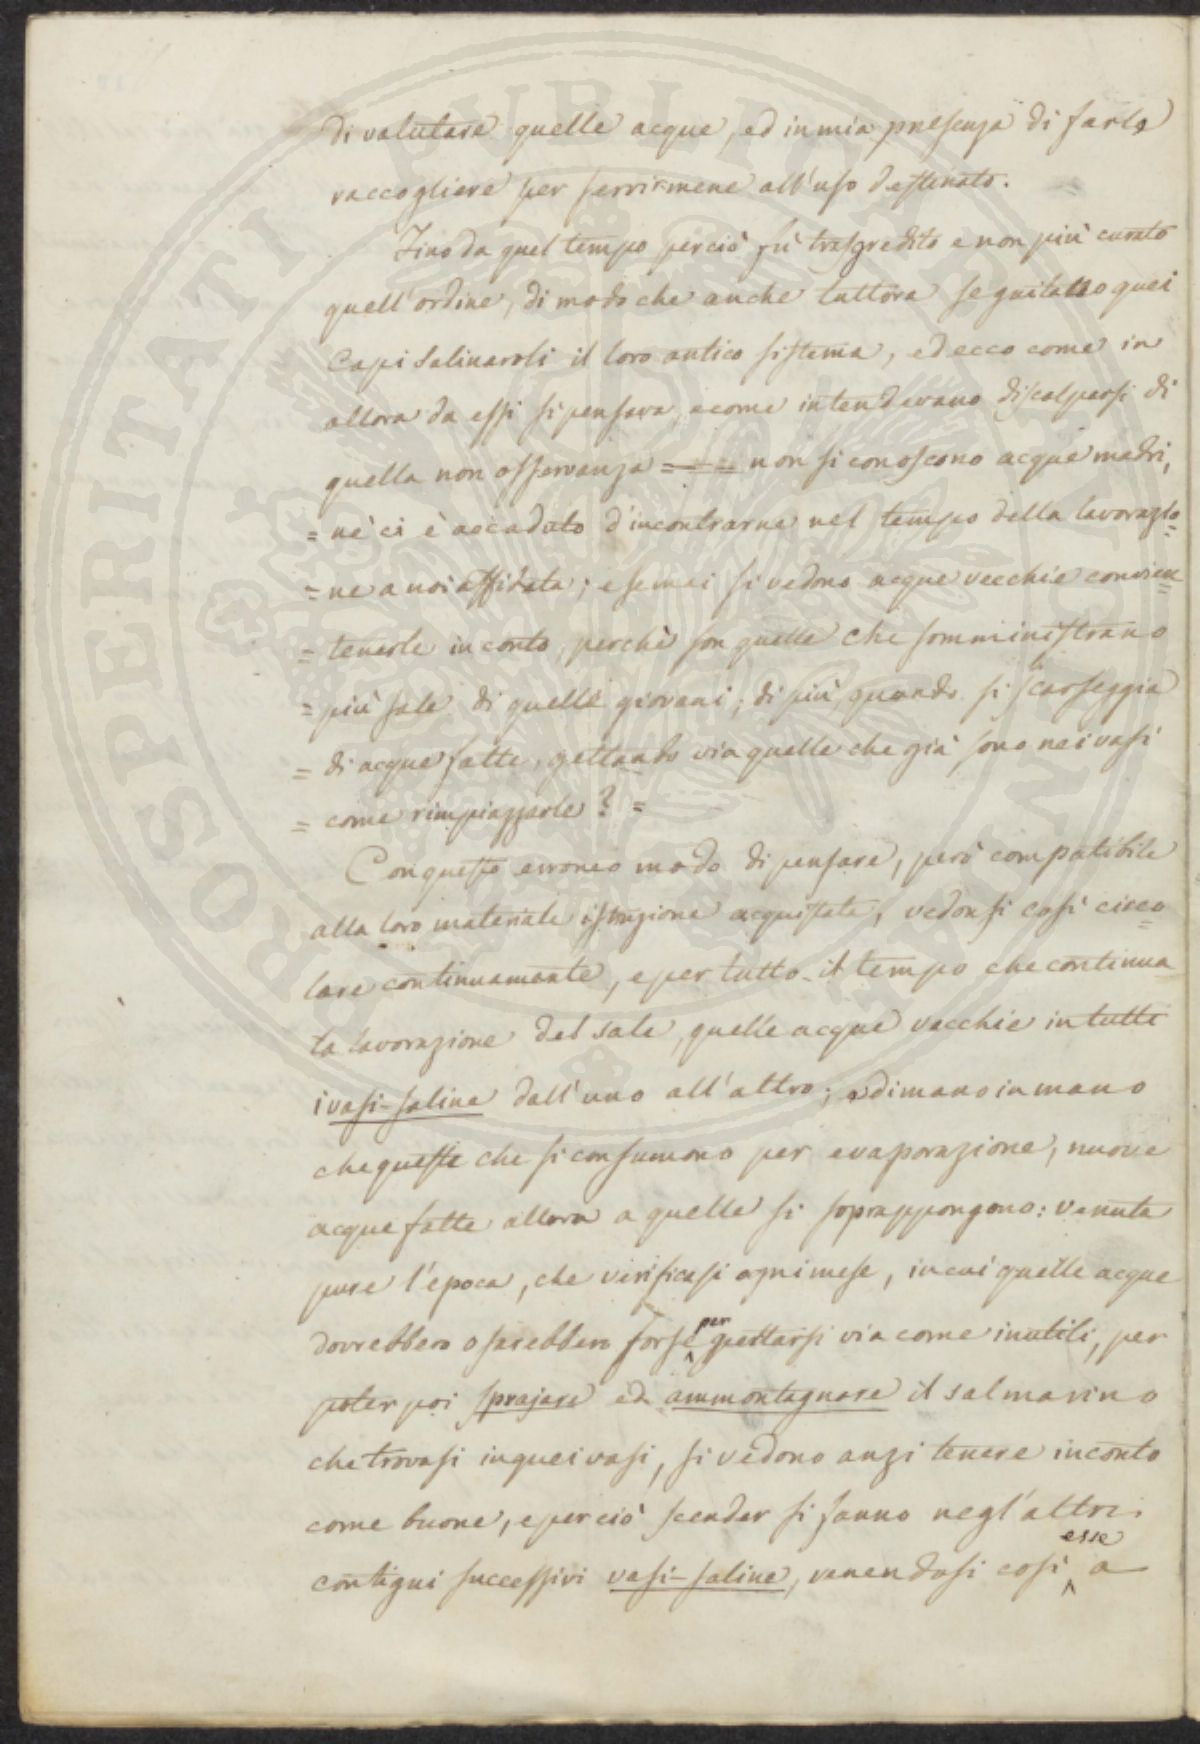 di valutare quelle acque, ed in mia presenza di farle
raccogliere per servirmene all'uso destinato.
Fino da quel tempo perciò fù trasgredito e non più curato
quell'ordine, di modo che anche tuttora seguitano quei
Capi Salinaroli il loro antico sistema, ed ecco come in
allora da essi si pensava, e come intendevano discolparsi di
quella non osservanza =—= non si conoscono acque madri,
= nè ci è accaduto d'incontrarne nel tempo della lavorazio=
= ne a noi affidata; e se mai si vedono acque vecchie convien=
= tenerle in conto, perchè son quelle che somministrano
= più sale di quelle giovani; di più, quando si scarseggia
= di acque fatte, gettando via quelle che già sono nei vasi
= come rimpiazzarle? =
Con questo erroneo modo di pensare, però compatibile
alla loro materiale istruzione acquistata, vedonsi così circo=
lare continuamente, e per tutto il tempo che continua
la lavorazione del sale, quelle acque vecchie in tutti
i vasi-saline dall'uno all'altro; e di mano in mano
che queste che si consumono per evaporazione, nuove
acque fatte allora a quelle si soprappongono: venuta
pure l'epoca, che verificasi ogni mese, in cui quelle acque
dovrebbero o sarebbero forse per gettarsi via come inutili, per
poter poi sprajare ed ammontagnare il sal marino
che trovasi in quei vasi, si vedono anzi tenere in conto
come buone, e perciò scender si fanno negl'altri
contigui successivi vasi-saline, venendosi così esse a
PROSPERITATI PUBLICAE AUGENDAE